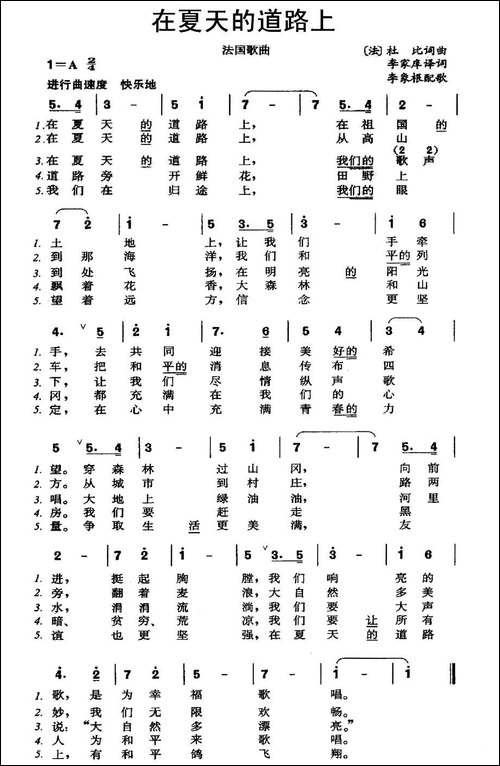 在夏天的道路上
法国歌曲
〔法〕杜 比词曲
1=A 2/4
李家庠译词
进行曲速度 快乐地
李象根配歌
5. 4 | 3 - | 2 - | 5 1 | 7 - | 7 5. 4 | 3 - |
1.在 夏 天 的 道 路 上, 在 祖 国 的
2.在 夏 天 的 道 路 上, 从 高 山
(2 2)
3.在 夏 天 的 道 路 上, 我们的 歌 声
4.道 路 旁 开 鲜 花, 田 野 上
5.我 们 在 归 途 上, 我们的 眼
7 2 | 1 - | 5 3. 5 | 3 - | 1 6 |
1. 土 地 上,让 我 们 手 牵
2. 到 那 海 洋,我 们 和 平的 列
3. 到 处 飞 扬,在 明 亮 的 阳 光
4. 飘 着 花 香,大 森 林 和 山
5. 望 着 远 方,信 念 更 坚
4. 5 | 2 1 | 7. 6 | 5 4 | 3 4 |
1. 手, 去 共 同 迎 接 美 好的 希
2. 车, 把 和 平的 消 息 传 布 四
3. 下, 让 我 们 尽 情 纵 声 歌
4. 冈, 都 充 满 在 我 们 的 心
5. 定, 在 心 中 充 满 青 春的 力
5 5. 4 | 3 - | 2 - | 5 1 | 7 - | 7 5. 4 | 3 - |
1. 望。穿 森 林 过 山 冈, 向 前
2. 方。从 城 市 到 村 庄, 路 两
3. 唱。大 地 上 绿 油 油, 河 里
4. 房。我 们 要 赶 走 黑
5. 量。争 取 生 活 更 美 满, 友
2 - | 7 2 | 1 - | 5 3. 5 | 3 - | 1 6 |
1. 进, 挺 起 胸 膛,我 们 响 亮 的
2. 旁, 翻 着 麦 浪,大 自 然 多 美
3. 水, 涓 涓 流 淌,我 们 要 大 声
4. 暗、 贫 穷、 荒 凉,我 们 要 让 所 有
5. 谊 也 更 坚 强,在 夏 天 的 道 路
4. 2 | 7 2 | 5 - | 7 - | 1 - | 1 ‖
1. 歌, 是 为 幸 福 歌 唱。
2. 妙, 我 们 无 限 欢 畅。
3. 说: “大 自 然 多 漂 亮。”
4. 人 为 和 平 来 歌 唱。
5. 上, 有 和 平 鸽 飞 翔。